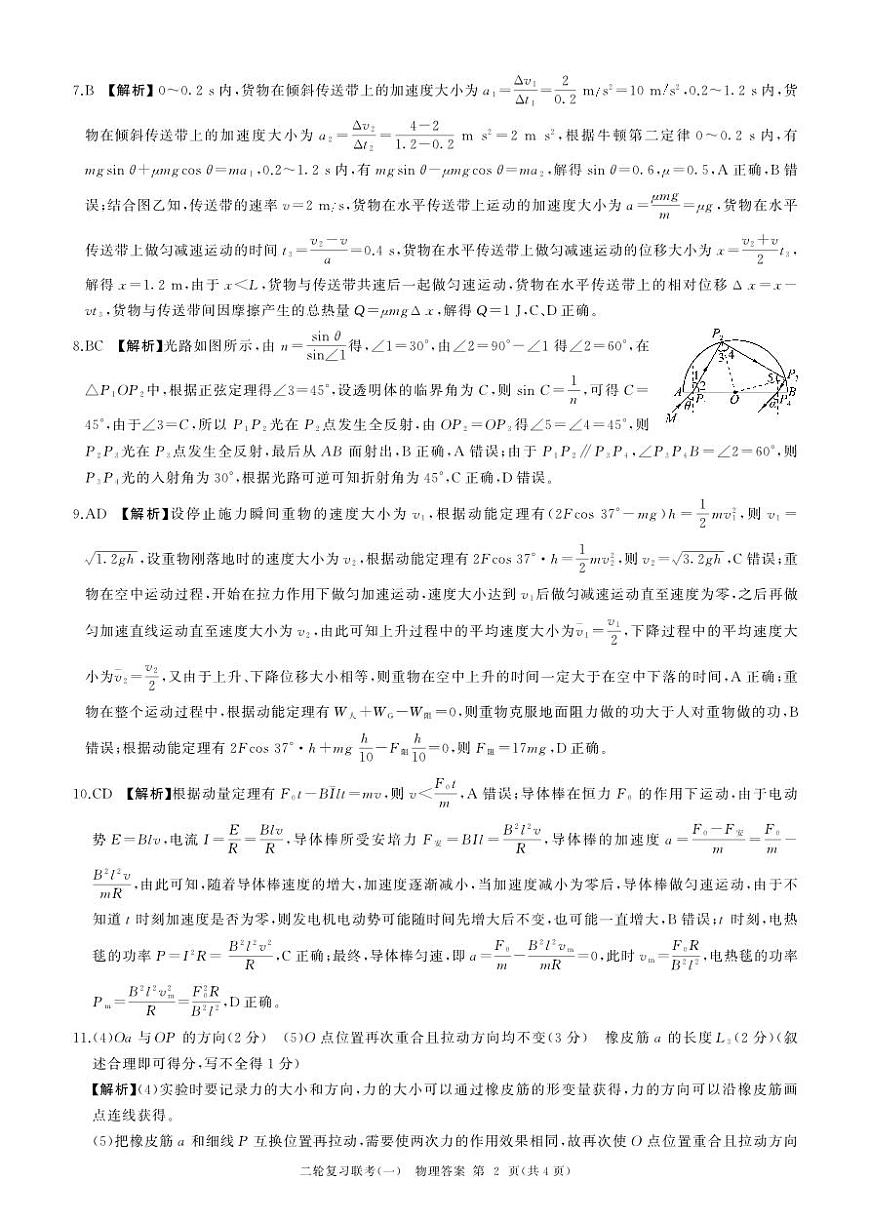 7.B 【解析】0～0.2 s内,货物在倾斜传送带上的加速度大小为 a₁=Δv₁/Δt₁=2/0.2 m/s²=10 m/s²,0.2～1.2 s内,货
物在倾斜传送带上的加速度大小为 a₂=Δv₂/Δt₂=(4-2)/(1.2-0.2) m s²=2 m s²,根据牛顿第二定律 0～0.2 s内,有
mgsin θ+μmgcos θ=ma₁,0.2～1.2 s内,有 mgsin θ-μmgcos θ=ma₂,解得 sin θ=0.6,μ=0.5,A正确,B错
误;结合图乙知,传送带的速率 v=2 m/s,货物在水平传送带上运动的加速度大小为 a=μmg/m=μg,货物在水平
传送带上做匀减速运动的时间 t₃=(v₂-v)/a=0.4 s,货物在水平传送带上做匀减速运动的位移大小为 x=(v₂+v)/2 t₃,
解得 x=1.2 m,由于 x<L,货物与传送带共速后一起做匀速运动,货物在水平传送带上的相对位移 Δx=x-
vt₃,货物与传送带间因摩擦产生的总热量 Q=μmgΔx,解得 Q=1 J,C、D正确。
8.BC 【解析】光路如图所示,由 n=sin θ/sin∠1得,∠1=30°,由∠2=90°-∠1得∠2=60°,在
△P₁OP₂中,根据正弦定理得∠3=45°,设透明体的临界角为 C,则 sin C=1/n,可得 C=
45°,由于∠3=C,所以 P₁P₂光在 P₂点发生全反射,由 OP₂=OP₃得∠5=∠4=45°,则
P₂P₃光在 P₃点发生全反射,最后从 AB 面射出,B正确,A错误;由于 P₁P₂∥P₃P₄,∠P₃P₄B=∠2=60°,则
P₃P₄光的入射角为 30°,根据光路可逆可知折射角为 45°,C正确,D错误。
P₂
3 4
1 2 5 P₃
A θ P₁ O α P₄ B
M
9.AD 【解析】设停止施力瞬间重物的速度大小为 v₁,根据动能定理有(2Fcos 37°-mg)h=1/2 mv₁²,则 v₁=
√1.2gh,设重物刚落地时的速度大小为 v₂,根据动能定理有 2Fcos 37°·h=1/2 mv₂²,则 v₂=√3.2gh,C错误;重
物在空中运动过程,开始在拉力作用下做匀加速运动,速度大小达到 v₁后做匀减速运动直至速度为零,之后再做
匀加速直线运动直至速度大小为 v₂,由此可知上升过程中的平均速度大小为v̄₁=v₁/2,下降过程中的平均速度大
小为v̄₂=v₂/2,又由于上升、下降位移大小相等,则重物在空中上升的时间一定大于在空中下落的时间,A正确;重
物在整个运动过程中,根据动能定理有 W人+WG-W阻=0,则重物克服地面阻力做的功大于人对重物做的功,B
错误;根据动能定理有 2Fcos 37°·h+mg h/10-F阻 h/10=0,则 F阻=17mg,D正确。
10.CD 【解析】根据动量定理有 F₀t-BĪlt=mv,则 v<F₀t/m,A错误;导体棒在恒力 F₀ 的作用下运动,由于电动
势 E=Blv,电流 I=E/R=Blv/R,导体棒所受安培力 F安=BIl=B²l²v/R,导体棒的加速度 a=(F₀-F安)/m=F₀/m-
B²l²v/mR,由此可知,随着导体棒速度的增大,加速度逐渐减小,当加速度减小为零后,导体棒做匀速运动,由于不
知道 t 时刻加速度是否为零,则发电机电动势可能随时间先增大后不变,也可能一直增大,B错误;t 时刻,电热
毯的功率 P=I²R=B²l²v²/R,C正确;最终,导体棒匀速,即 a=F₀/m-B²l²vₘ/mR=0,此时 vₘ=F₀R/B²l²,电热毯的功率
Pₘ=B²l²vₘ²/R=F₀²R/B²l²,D正确。
11.(4)Oa 与OP 的方向(2分) (5)O 点位置再次重合且拉动方向均不变(3分) 橡皮筋 a 的长度L₃(2分)(叙
述合理即可得分,写不全得1分)
【解析】(4)实验时要记录力的大小和方向,力的大小可以通过橡皮筋的形变量获得,力的方向可以沿橡皮筋画
点连线获得。
(5)把橡皮筋 a 和细线 P 互换位置再拉动,需要使两次力的作用效果相同,故再次使 O 点位置重合且拉动方向
二轮复习联考(一) 物理答案 第 2 页(共4页)